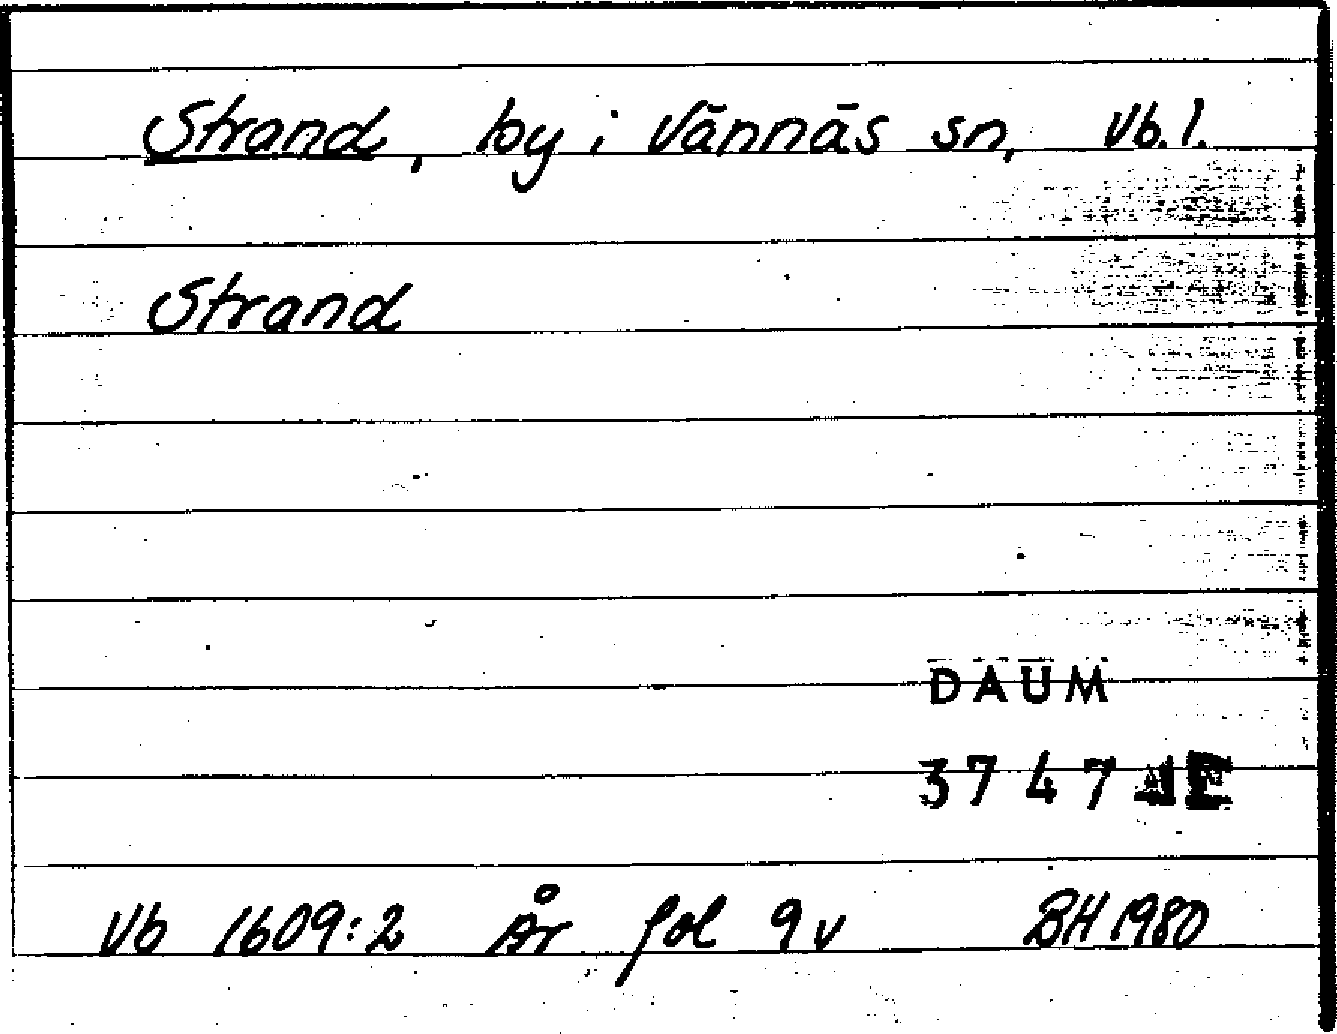 Strand, by i Vännäs sn, Vb.l.
Strand
DAUM
3747
Vb 1609:2 År fol 9v BH 1980